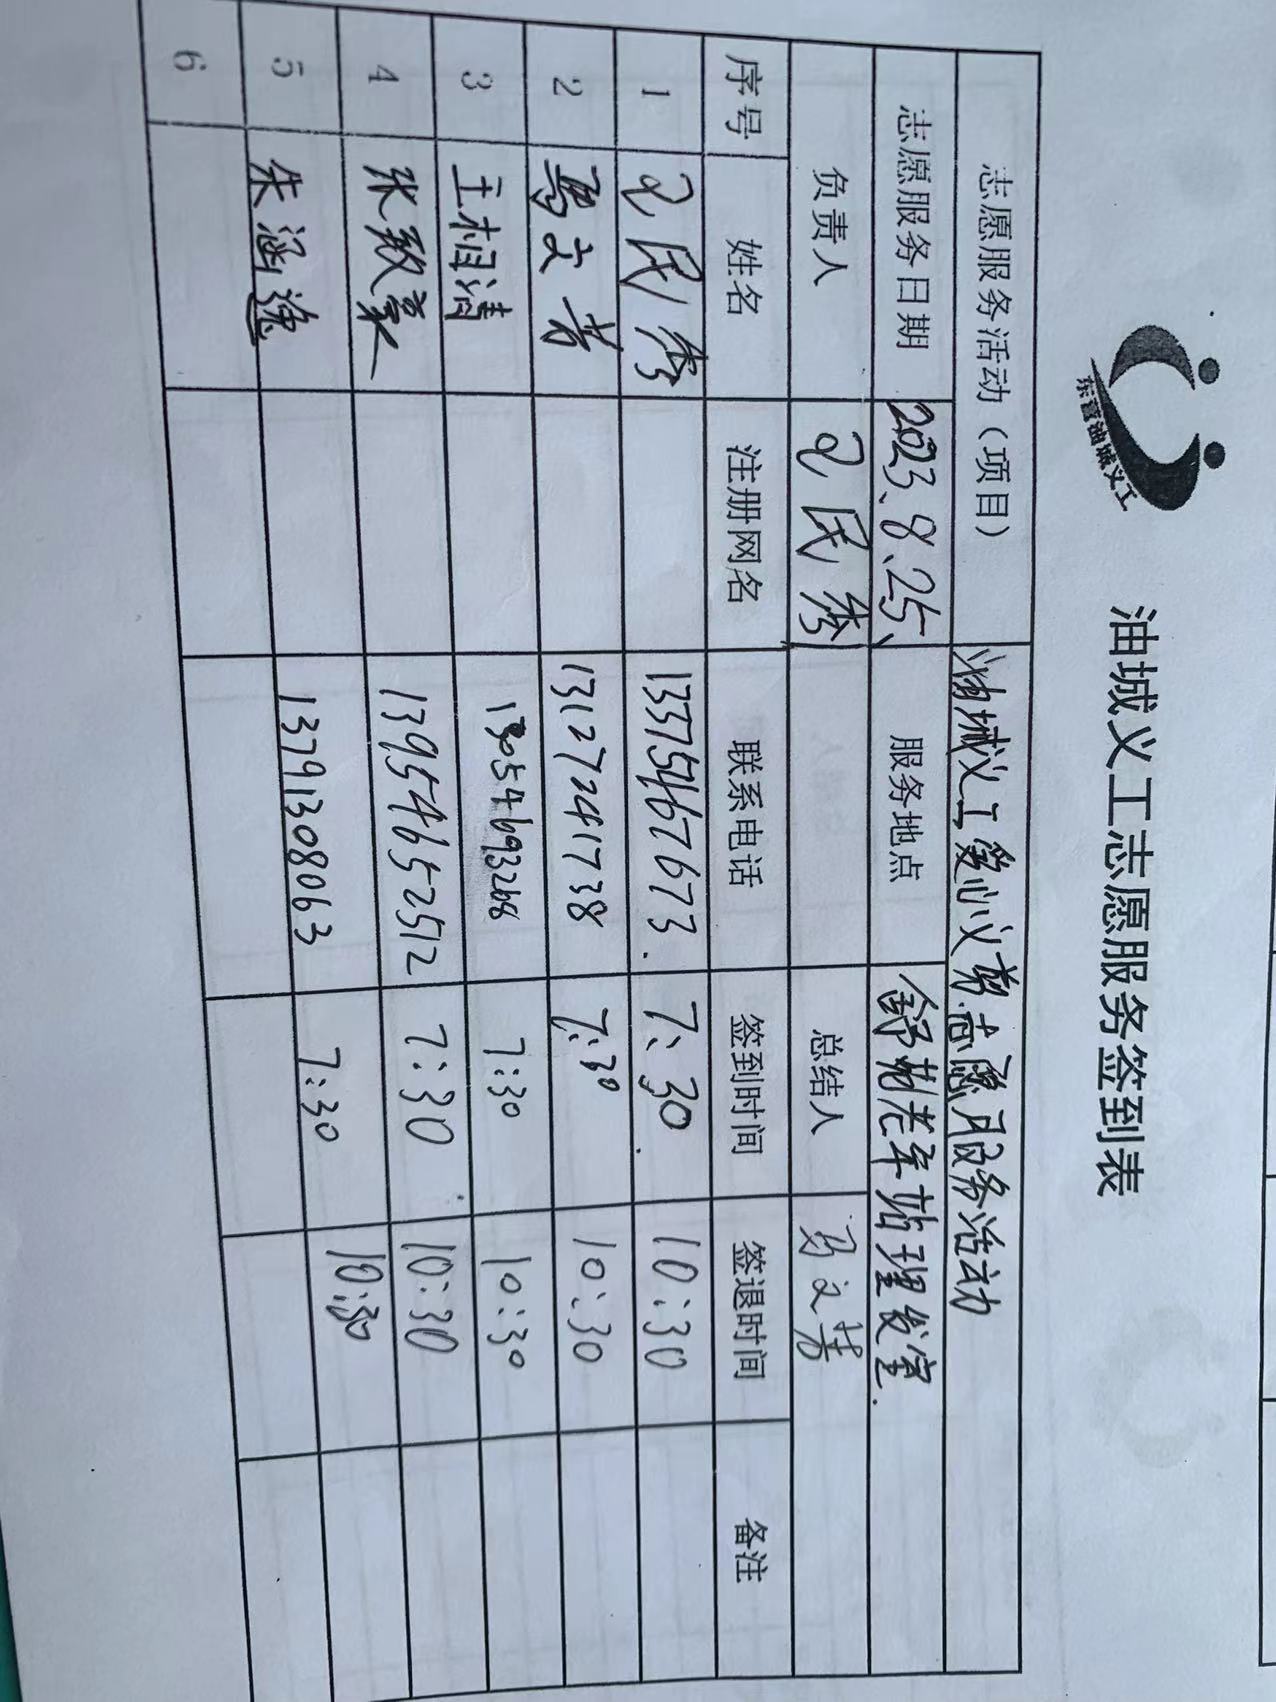 东营油城义工
油城义工志愿服务签到表
志愿服务活动（项目） 油城义工爱心义剪志愿服务活动
志愿服务日期 2023、8、25、 服务地点 锦苑老年站理发室.
负责人 民秀 总结人 马文芳
序号 姓名 注册网名 联系电话 签到时间 签退时间 备注
1 民秀 13375467673. 7:30 10:30
2 马文芳 13127241738 7:30 10:30
3 王相清 7:30 10:30
4 张毅豪 13954652512 7:30 10:30
5 朱涵逸 13791308063 7:30 10:30
6